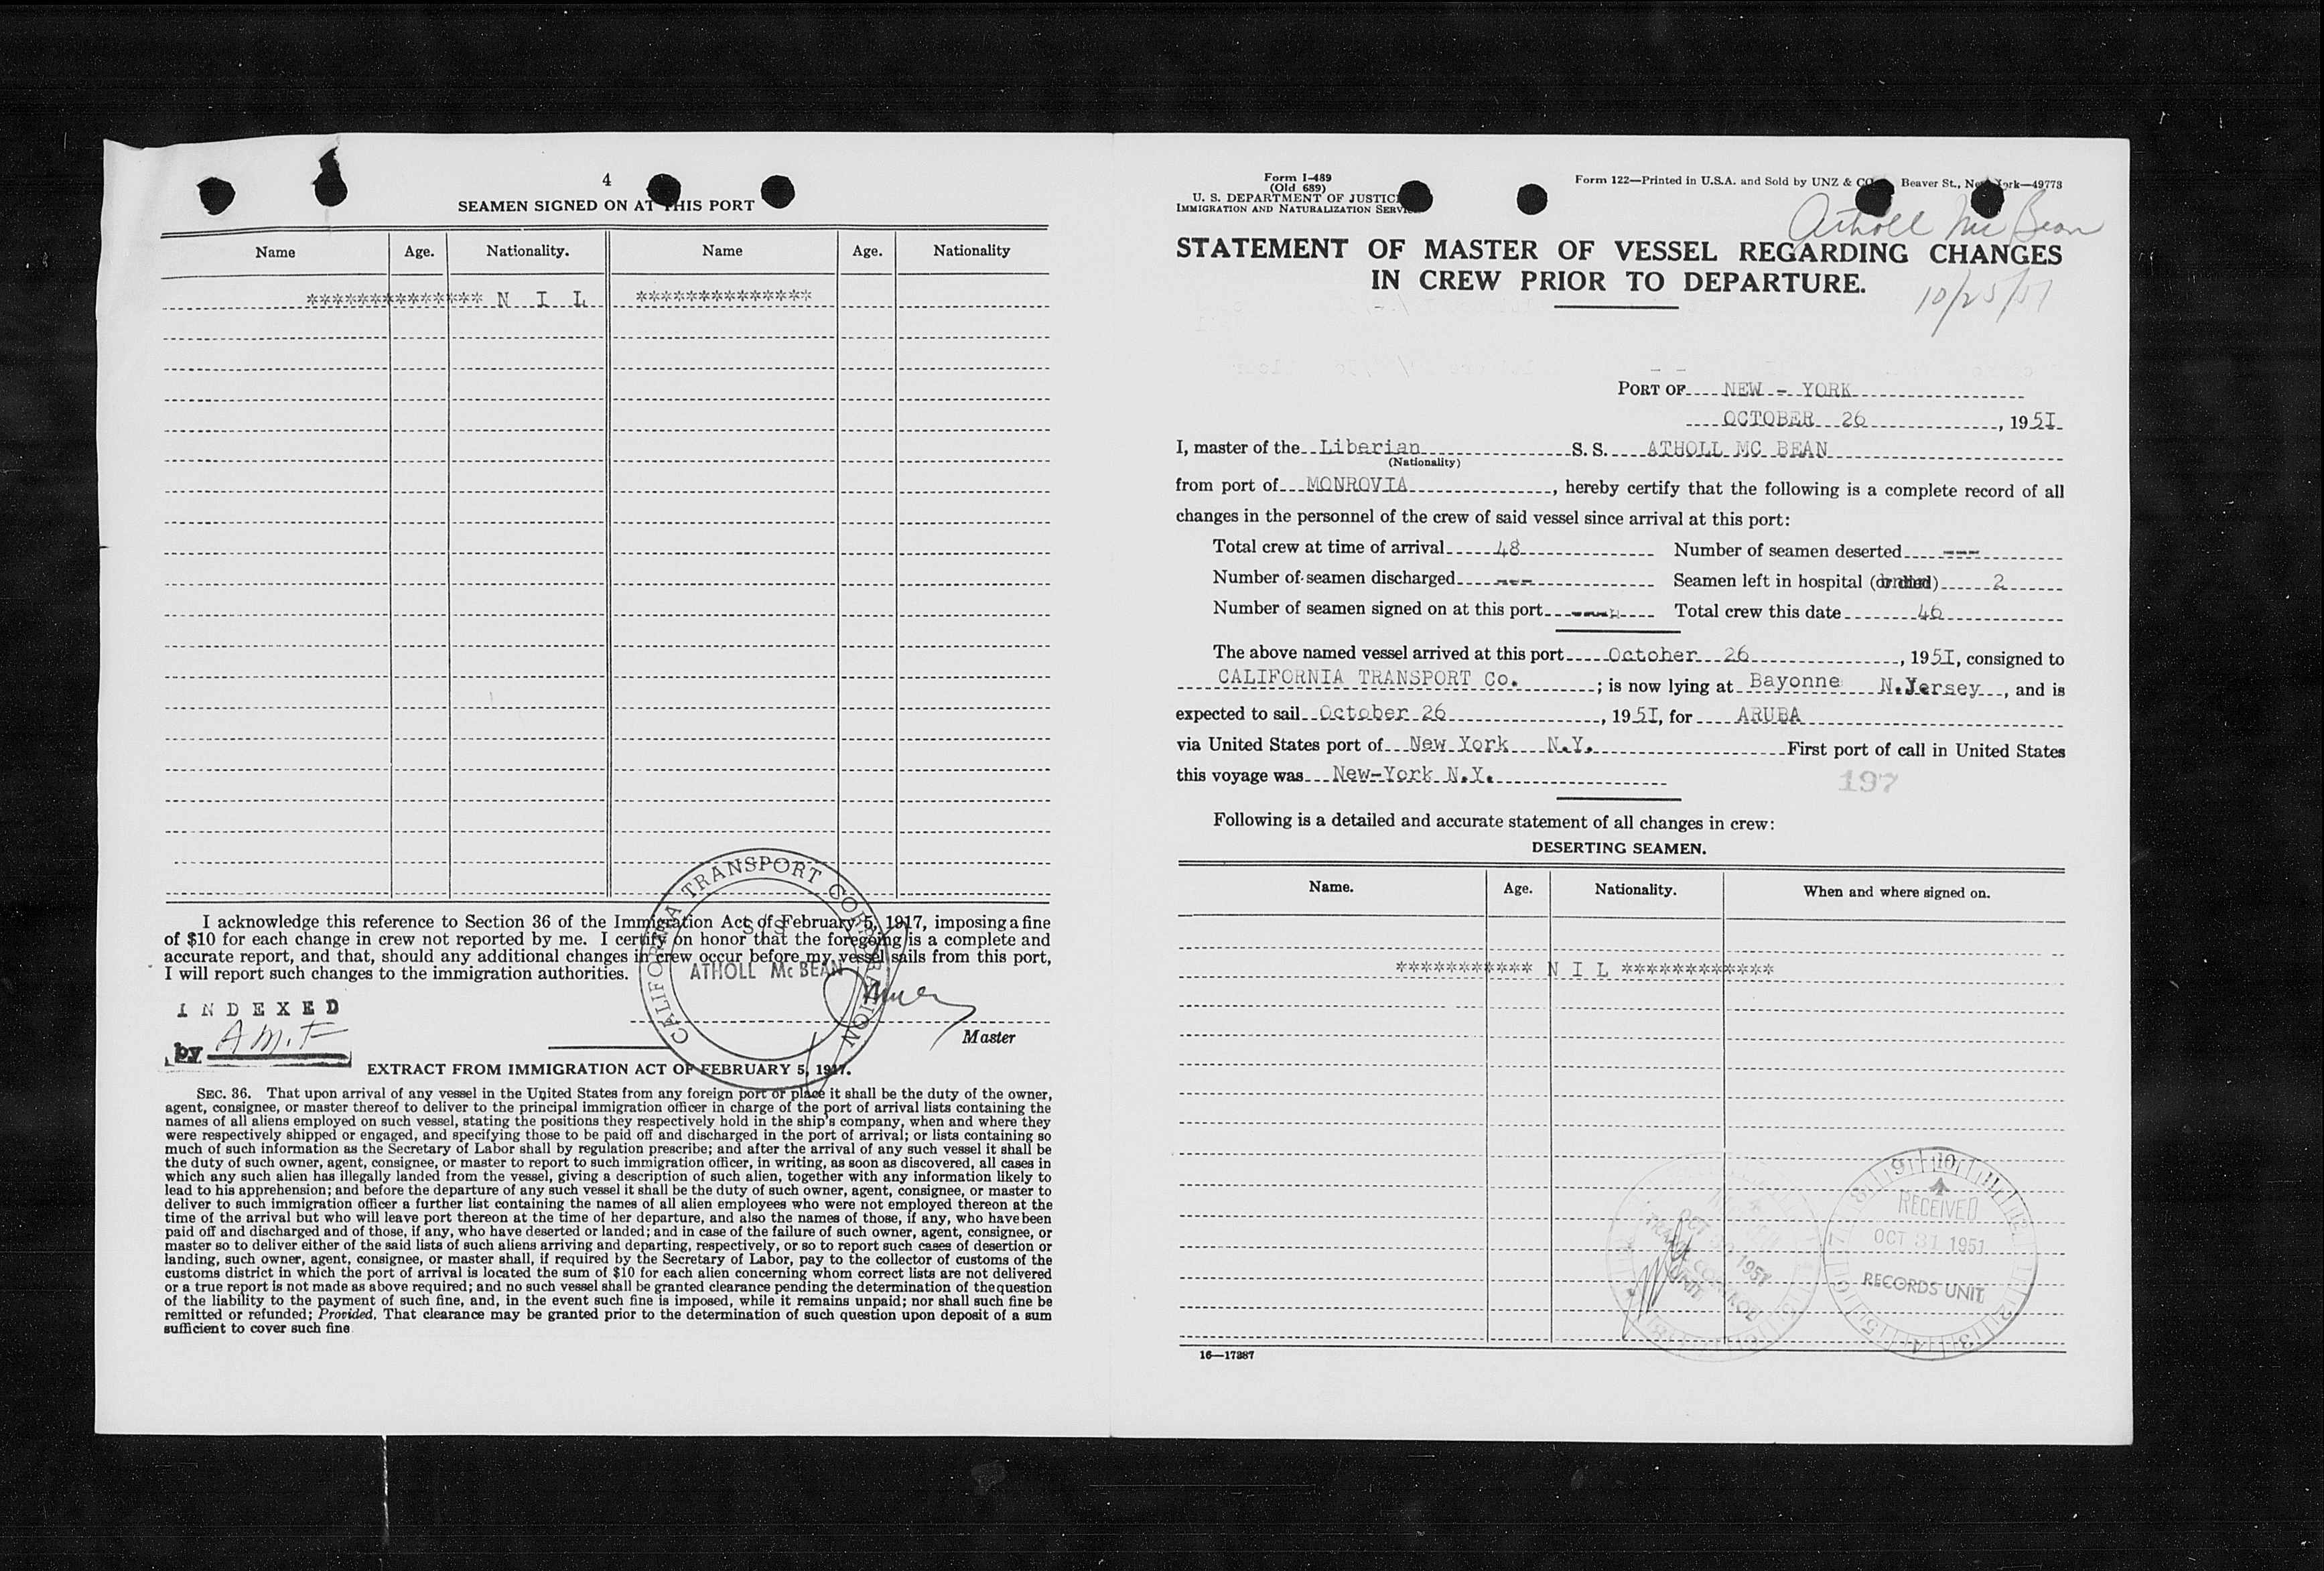 4
SEAMEN SIGNED ON AT THIS PORT
Name Age. Nationality. Name Age. Nationality
************** N I L **************
I acknowledge this reference to Section 36 of the Immigration Act of February 5, 1917, imposing a fine
of $10 for each change in crew not reported by me. I certify on honor that the foregoing is a complete and
accurate report, and that, should any additional changes in crew occur before my vessel sails from this port,
I will report such changes to the immigration authorities.
CALIFORNIA TRANSPORT CORPORATION
S/S
ATHOLL Mc BEAN
INDEXED
by A.M.F
Master
EXTRACT FROM IMMIGRATION ACT OF FEBRUARY 5, 1917.
SEC. 36. That upon arrival of any vessel in the United States from any foreign port or place it shall be the duty of the owner,
agent, consignee, or master thereof to deliver to the principal immigration officer in charge of the port of arrival lists containing the
names of all aliens employed on such vessel, stating the positions they respectively hold in the ship's company, when and where they
were respectively shipped or engaged, and specifying those to be paid off and discharged in the port of arrival; or lists containing so
much of such information as the Secretary of Labor shall by regulation prescribe; and after the arrival of any such vessel it shall be
the duty of such owner, agent, consignee, or master to report to such immigration officer, in writing, as soon as discovered, all cases in
which any such alien has illegally landed from the vessel, giving a description of such alien, together with any information likely to
lead to his apprehension; and before the departure of any such vessel it shall be the duty of such owner, agent, consignee, or master to
deliver to such immigration officer a further list containing the names of all alien employees who were not employed thereon at the
time of the arrival but who will leave port thereon at the time of her departure, and also the names of those, if any, who have been
paid off and discharged and of those, if any, who have deserted or landed; and in case of the failure of such owner, agent, consignee, or
master so to deliver either of the said lists of such aliens arriving and departing, respectively, or so to report such cases of desertion or
landing, such owner, agent, consignee, or master shall, if required by the Secretary of Labor, pay to the collector of customs of the
customs district in which the port of arrival is located the sum of $10 for each alien concerning whom correct lists are not delivered
or a true report is not made as above required; and no such vessel shall be granted clearance pending the determination of the question
of the liability to the payment of such fine, and, in the event such fine is imposed, while it remains unpaid; nor shall such fine be
remitted or refunded; Provided, That clearance may be granted prior to the determination of such question upon deposit of a sum
sufficient to cover such fine
Form I-489
(Old 689)
U. S. DEPARTMENT OF JUSTICE
IMMIGRATION AND NATURALIZATION SERVICE
Form 122—Printed in U.S.A. and Sold by UNZ & CO. Beaver St., New York—49773
Atholl Mc Bean
STATEMENT OF MASTER OF VESSEL REGARDING CHANGES
IN CREW PRIOR TO DEPARTURE.
10/25/51
PORT OF NEW - YORK
OCTOBER 26, 1951
I, master of the Liberian S. S. ATHOLL MC BEAN
(Nationality)
from port of MONROVIA, hereby certify that the following is a complete record of all
changes in the personnel of the crew of said vessel since arrival at this port:
Total crew at time of arrival 48 Number of seamen deserted ---
Number of seamen discharged --- Seamen left in hospital (or died) 2
Number of seamen signed on at this port ---- Total crew this date 46
The above named vessel arrived at this port October 26, 195I, consigned to
CALIFORNIA TRANSPORT Co. ; is now lying at Bayonne N.Yersey, and is
expected to sail October 26, 195I, for ARUBA
via United States port of New York N.Y. First port of call in United States
this voyage was New-York N.Y.
197
Following is a detailed and accurate statement of all changes in crew:
DESERTING SEAMEN.
Name. Age. Nationality. When and where signed on.
*********** N I L ************
RECEIVED
OCT 31 1951
RECORDS UNIT
16—17387